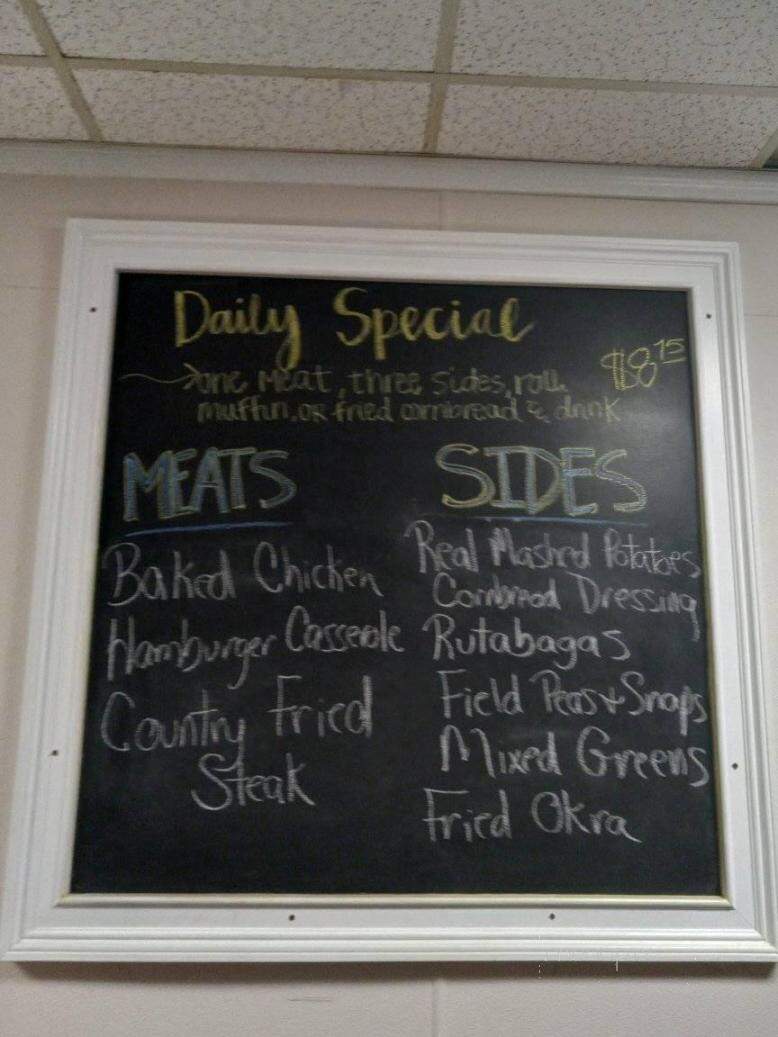 Daily Special
one meat, three sides, roll $8.75
muffin, or fried cornbread & drink
MEATS
Baked Chicken
Hamburger Casserole
Country Fried
Steak
SIDES
Real Mashed Potatoes
Cornbread Dressing
Rutabagas
Field Peas + Snaps
Mixed Greens
Fried Okra